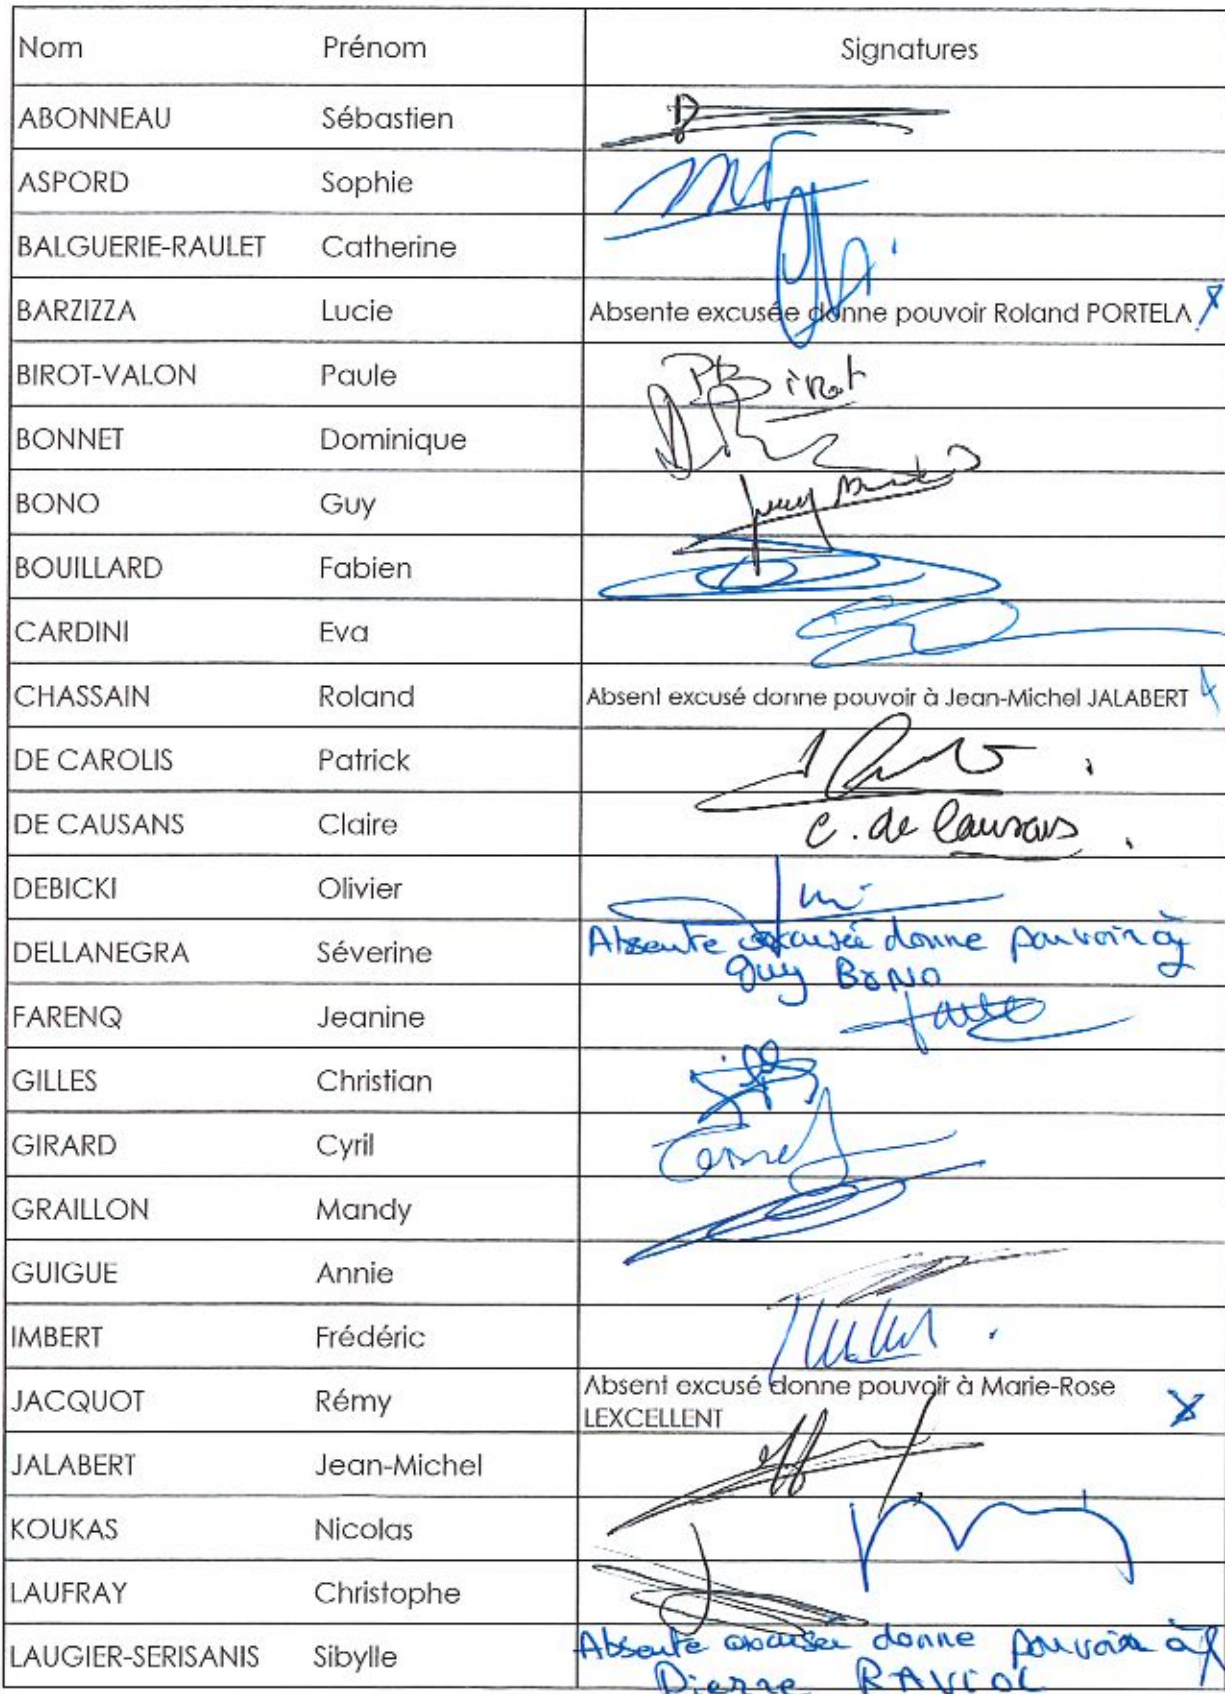 Nom Prénom Signatures
ABONNEAU Sébastien
ASPORD Sophie
BALGUERIE-RAULET Catherine
BARZIZZA Lucie Absente excusée donne pouvoir Roland PORTELA
BIROT-VALON Paule PBirot
BONNET Dominique
BONO Guy Guy
BOUILLARD Fabien
CARDINI Eva
CHASSAIN Roland Absent excusé donne pouvoir à Jean-Michel JALABERT
DE CAROLIS Patrick
DE CAUSANS Claire C. de Causans
DEBICKI Olivier
DELLANEGRA Séverine Absente excusée donne pouvoir à
Guy BONO
FARENQ Jeanine
GILLES Christian
GIRARD Cyril
GRAILLON Mandy
GUIGUE Annie
IMBERT Frédéric
JACQUOT Rémy Absent excusé donne pouvoir à Marie-Rose
LEXCELLENT
JALABERT Jean-Michel
KOUKAS Nicolas
LAUFRAY Christophe
LAUGIER-SERISANIS Sibylle Absente excusée donne pouvoir à
Pierre RAVIOL